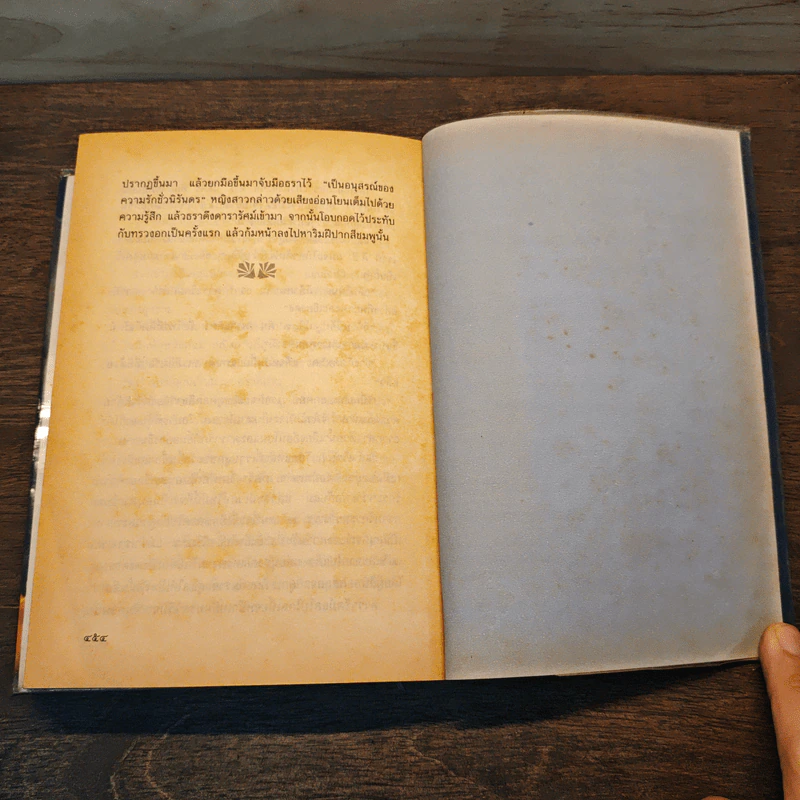 ปรากฏขึ้นมา แล้วยกมือขึ้นมาจับมือธราไว้ "เป็นอนุสรณ์ของ
ความรักชั่วนิรันดร" หญิงสาวกล่าวด้วยเสียงอ่อนโยนเต็มไปด้วย
ความรู้สึก แล้วธราดึงดารารัศมีเข้ามา จากนั้นโอบกอดไว้ประทับ
กับทรวงอกเป็นครั้งแรก แล้วก้มหน้าลงไปหาริมฝีปากสีชมพูนั้น
๔๕๔